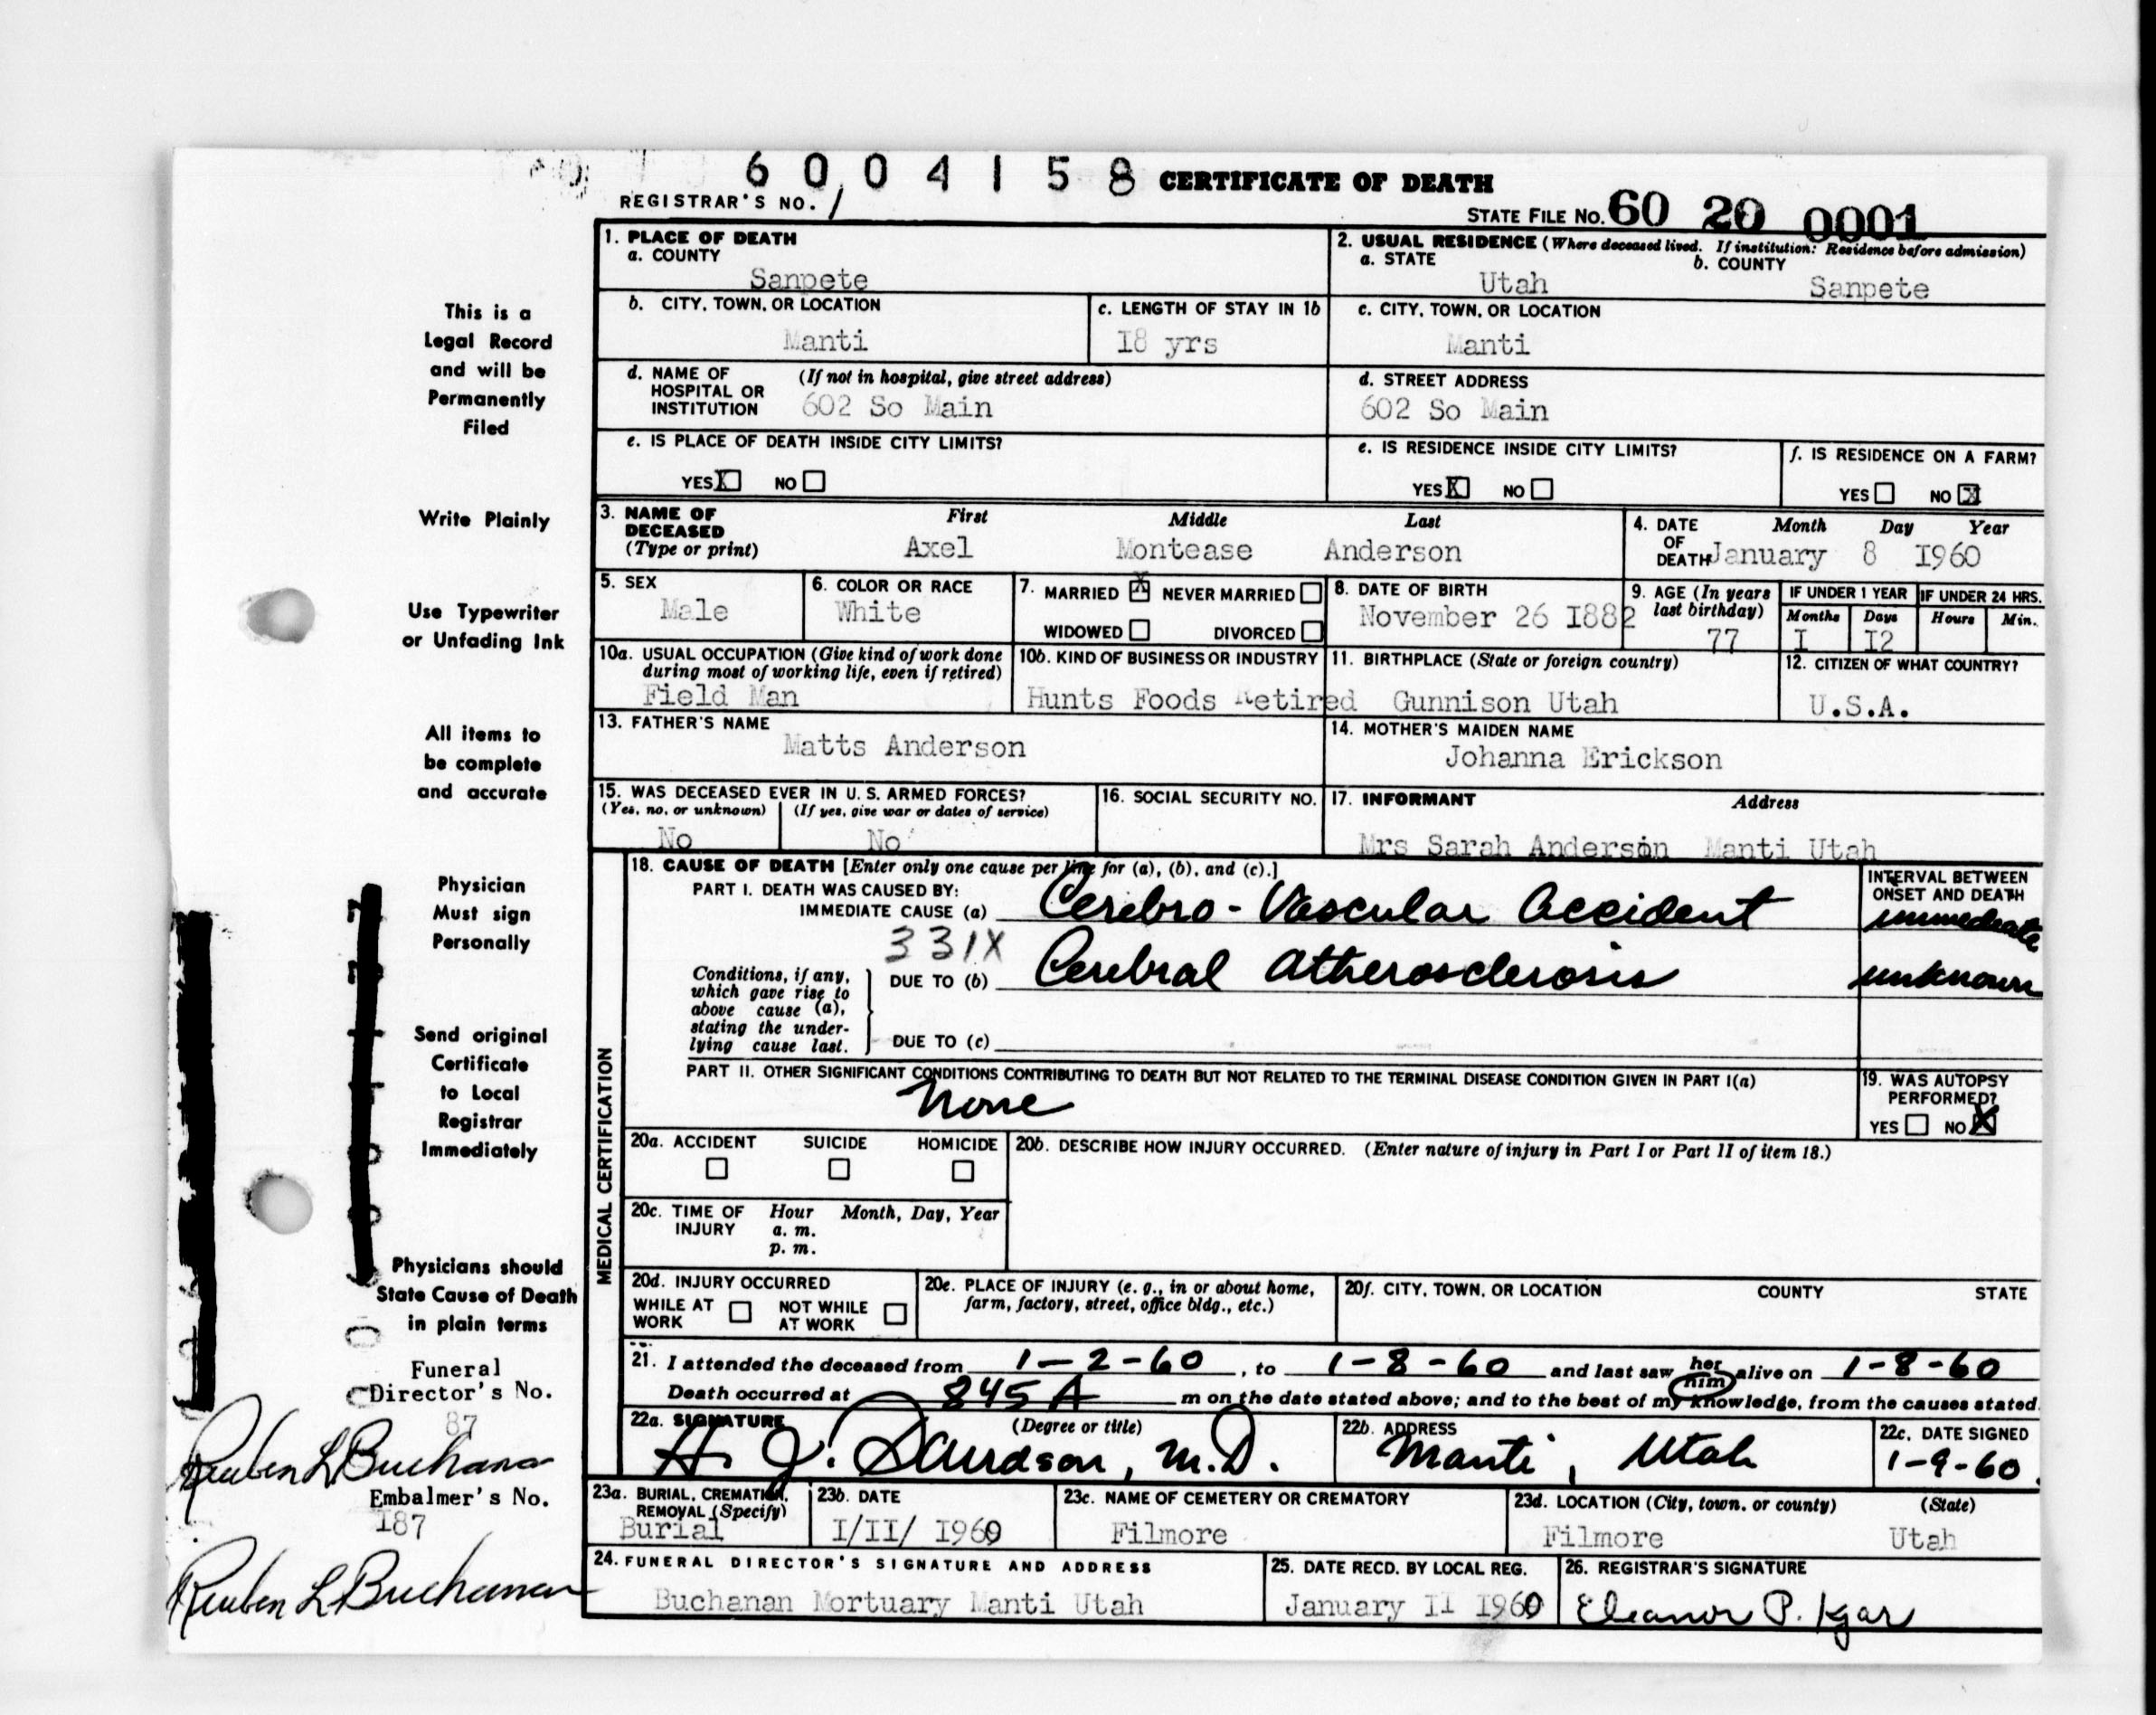 6004158 CERTIFICATE OF DEATH
REGISTRAR'S NO. 1
STATE FILE NO. 60 20 0001
1. PLACE OF DEATH
a. COUNTY
Sanpete
2. USUAL RESIDENCE (Where deceased lived. If institution: Residence before admission)
a. STATE b. COUNTY
Utah Sanpete
b. CITY, TOWN, OR LOCATION
Manti
c. LENGTH OF STAY IN 1b
18 yrs
c. CITY, TOWN, OR LOCATION
Manti
d. NAME OF HOSPITAL OR INSTITUTION (If not in hospital, give street address)
602 So Main
d. STREET ADDRESS
602 So Main
e. IS PLACE OF DEATH INSIDE CITY LIMITS?
YES X NO
e. IS RESIDENCE INSIDE CITY LIMITS?
YES X NO
f. IS RESIDENCE ON A FARM?
YES NO X
3. NAME OF DECEASED (Type or print) First Middle Last
Axel Montease Anderson
4. DATE OF DEATH Month Day Year
January 8 1960
5. SEX
Male
6. COLOR OR RACE
White
7. MARRIED X NEVER MARRIED
WIDOWED DIVORCED
8. DATE OF BIRTH
November 26 1882
9. AGE (In years last birthday)
77
IF UNDER 1 YEAR
Months Days
I I2
IF UNDER 24 HRS.
Hours Min.
10a. USUAL OCCUPATION (Give kind of work done during most of working life, even if retired)
Field Man
10b. KIND OF BUSINESS OR INDUSTRY
Hunts Foods Retired
11. BIRTHPLACE (State or foreign country)
Gunnison Utah
12. CITIZEN OF WHAT COUNTRY?
U.S.A.
13. FATHER'S NAME
Matts Anderson
14. MOTHER'S MAIDEN NAME
Johanna Erickson
15. WAS DECEASED EVER IN U. S. ARMED FORCES?
(Yes, no, or unknown) (If yes, give war or dates of service)
No No
16. SOCIAL SECURITY NO.
17. INFORMANT Address
Mrs Sarah Anderson Manti Utah
MEDICAL CERTIFICATION
18. CAUSE OF DEATH [Enter only one cause per line for (a), (b), and (c).]
PART I. DEATH WAS CAUSED BY:
IMMEDIATE CAUSE (a) Cerebro-Vascular Accident
331X
Conditions, if any, which gave rise to above cause (a), stating the underlying cause last.
DUE TO (b) Cerebral Atherosclerosis
DUE TO (c)
INTERVAL BETWEEN ONSET AND DEATH
immediate
unknown
PART II. OTHER SIGNIFICANT CONDITIONS CONTRIBUTING TO DEATH BUT NOT RELATED TO THE TERMINAL DISEASE CONDITION GIVEN IN PART I(a)
None
19. WAS AUTOPSY PERFORMED?
YES NO X
20a. ACCIDENT SUICIDE HOMICIDE
20b. DESCRIBE HOW INJURY OCCURRED. (Enter nature of injury in Part I or Part II of item 18.)
20c. TIME OF INJURY Hour Month, Day, Year
a. m.
p. m.
20d. INJURY OCCURRED
WHILE AT WORK NOT WHILE AT WORK
20e. PLACE OF INJURY (e. g., in or about home, farm, factory, street, office bldg., etc.)
20f. CITY, TOWN, OR LOCATION COUNTY STATE
21. I attended the deceased from 1-2-60, to 1-8-60 and last saw her him alive on 1-8-60
Death occurred at 845 A m on the date stated above; and to the best of my knowledge, from the causes stated.
22a. SIGNATURE (Degree or title)
H. J. M.D.
22b. ADDRESS
Manti, Utah
22c. DATE SIGNED
1-9-60.
23a. BURIAL, CREMATION, REMOVAL (Specify)
Burial
23b. DATE
I/II/ 1960
23c. NAME OF CEMETERY OR CREMATORY
Filmore
23d. LOCATION (City, town, or county) (State)
Filmore Utah
24. FUNERAL DIRECTOR'S SIGNATURE AND ADDRESS
Buchanan Mortuary Manti Utah
25. DATE RECD. BY LOCAL REG.
January II 1960
26. REGISTRAR'S SIGNATURE
Eleanor P. Kjar
This is a
Legal Record
and will be
Permanently
Filed
Write Plainly
Use Typewriter
or Unfading Ink
All items to
be complete
and accurate
Physician
Must sign
Personally
Send original
Certificate
to Local
Registrar
Immediately
Physicians should
State Cause of Death
in plain terms
Funeral
Director's No.
87
Reuben L Buchanan
Embalmer's No.
I87
Reuben L Buchanan